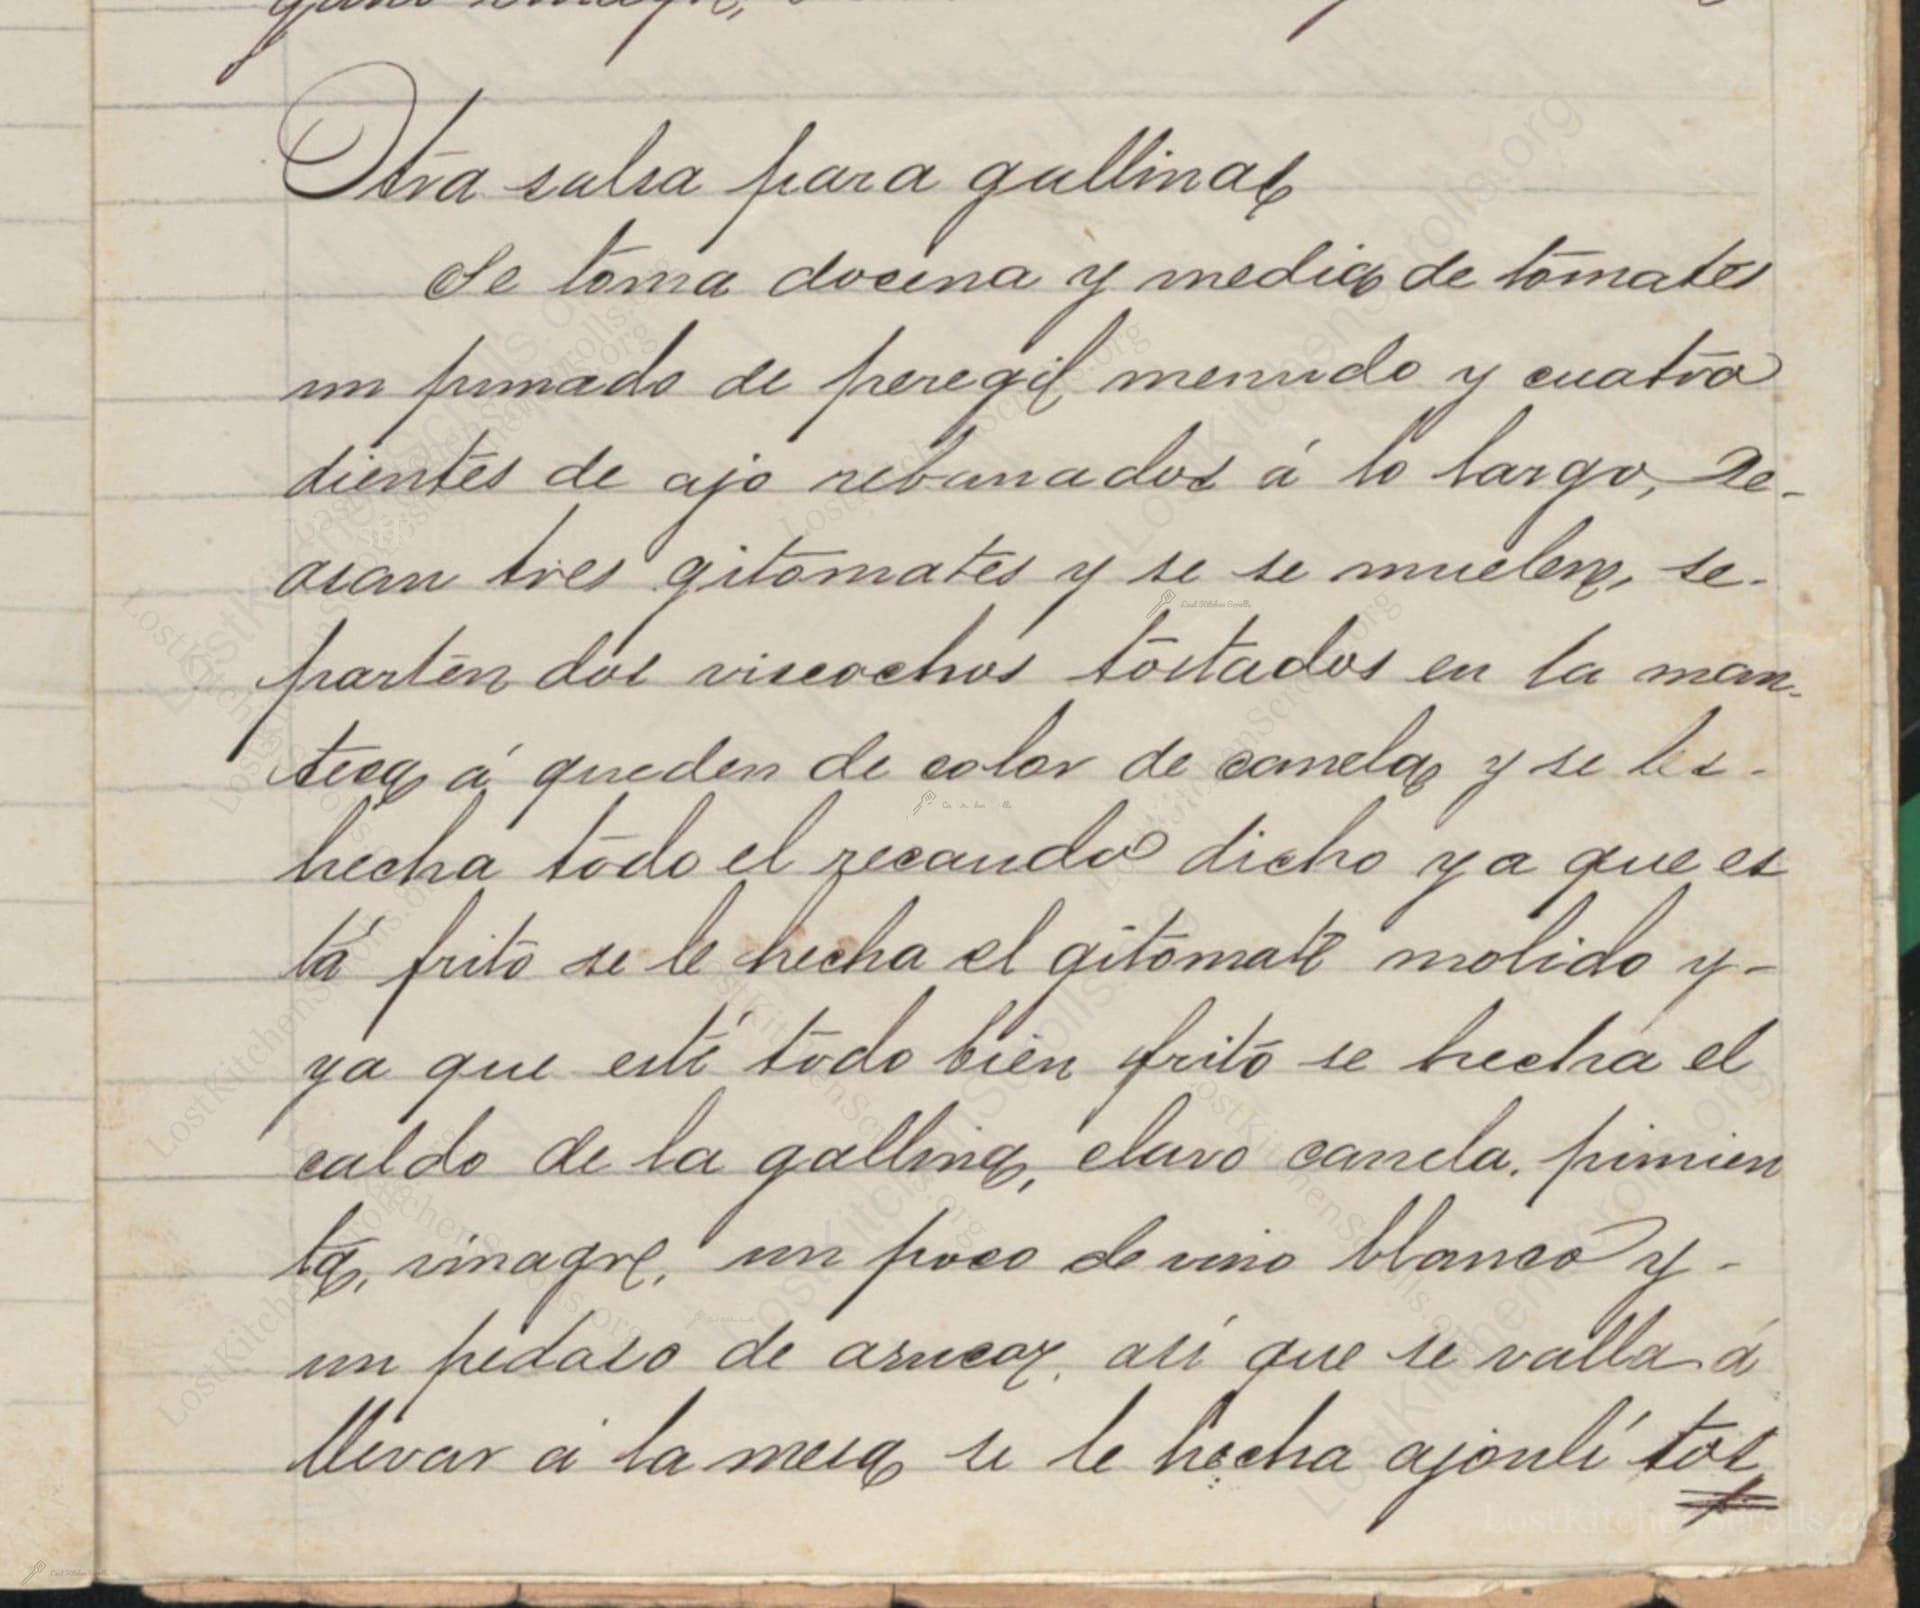 Otra salsa para gallinas
Se toma docena y media de tomates
un puñado de peregil menudo y cuatro
dientes de ajo rebanados á lo largo, Se-
asan tres gitomates y se se muelen, se-
parten dos viscochos tostados en la man-
teca á queden de color de canela y se les-
hecha todo el recaudo dicho ya que es
tá frito se le hecha el gitomate molido y-
ya que esté todo bien frito se hecha el
caldo de la gallina, clavo canela. pimien
ta, vinagre, un poco de vino blanco y-
un pedaso de asucar. asi que se valla á
llevar á la mesa se le hecha ajonlí tos
LostKitchenScrolls.org